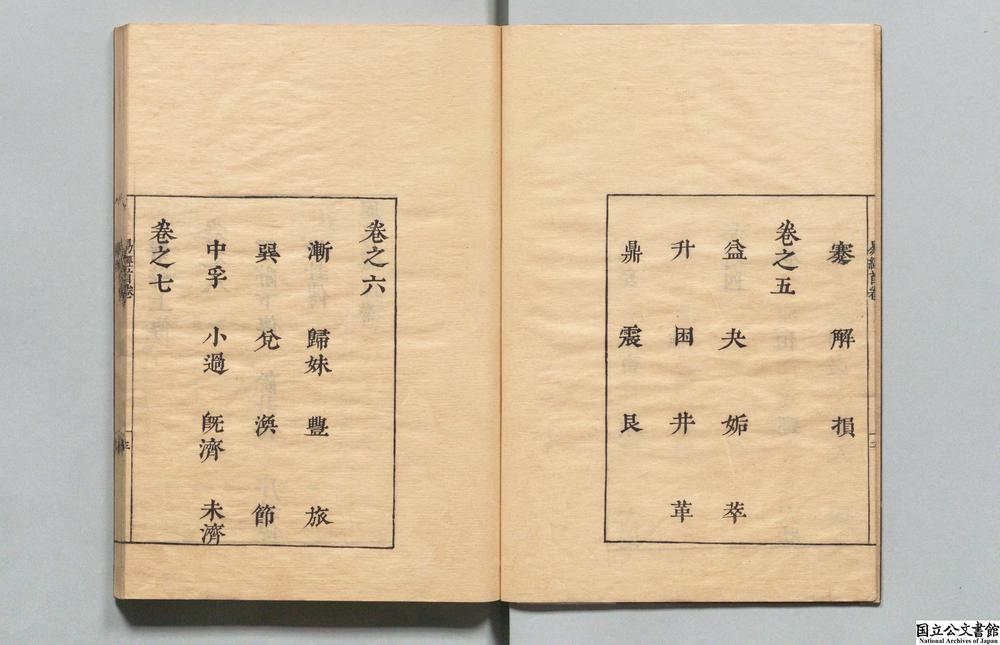 蹇 解 損
卷之五
益 夬 姤 萃
升 困 井 革
鼎 震 艮
卷之六
漸 歸妹 豐 旅
巽 兌 渙 節
中孚 小過 旣濟 未濟
卷之七
易經首卷
国立公文書館
National Archives of Japan